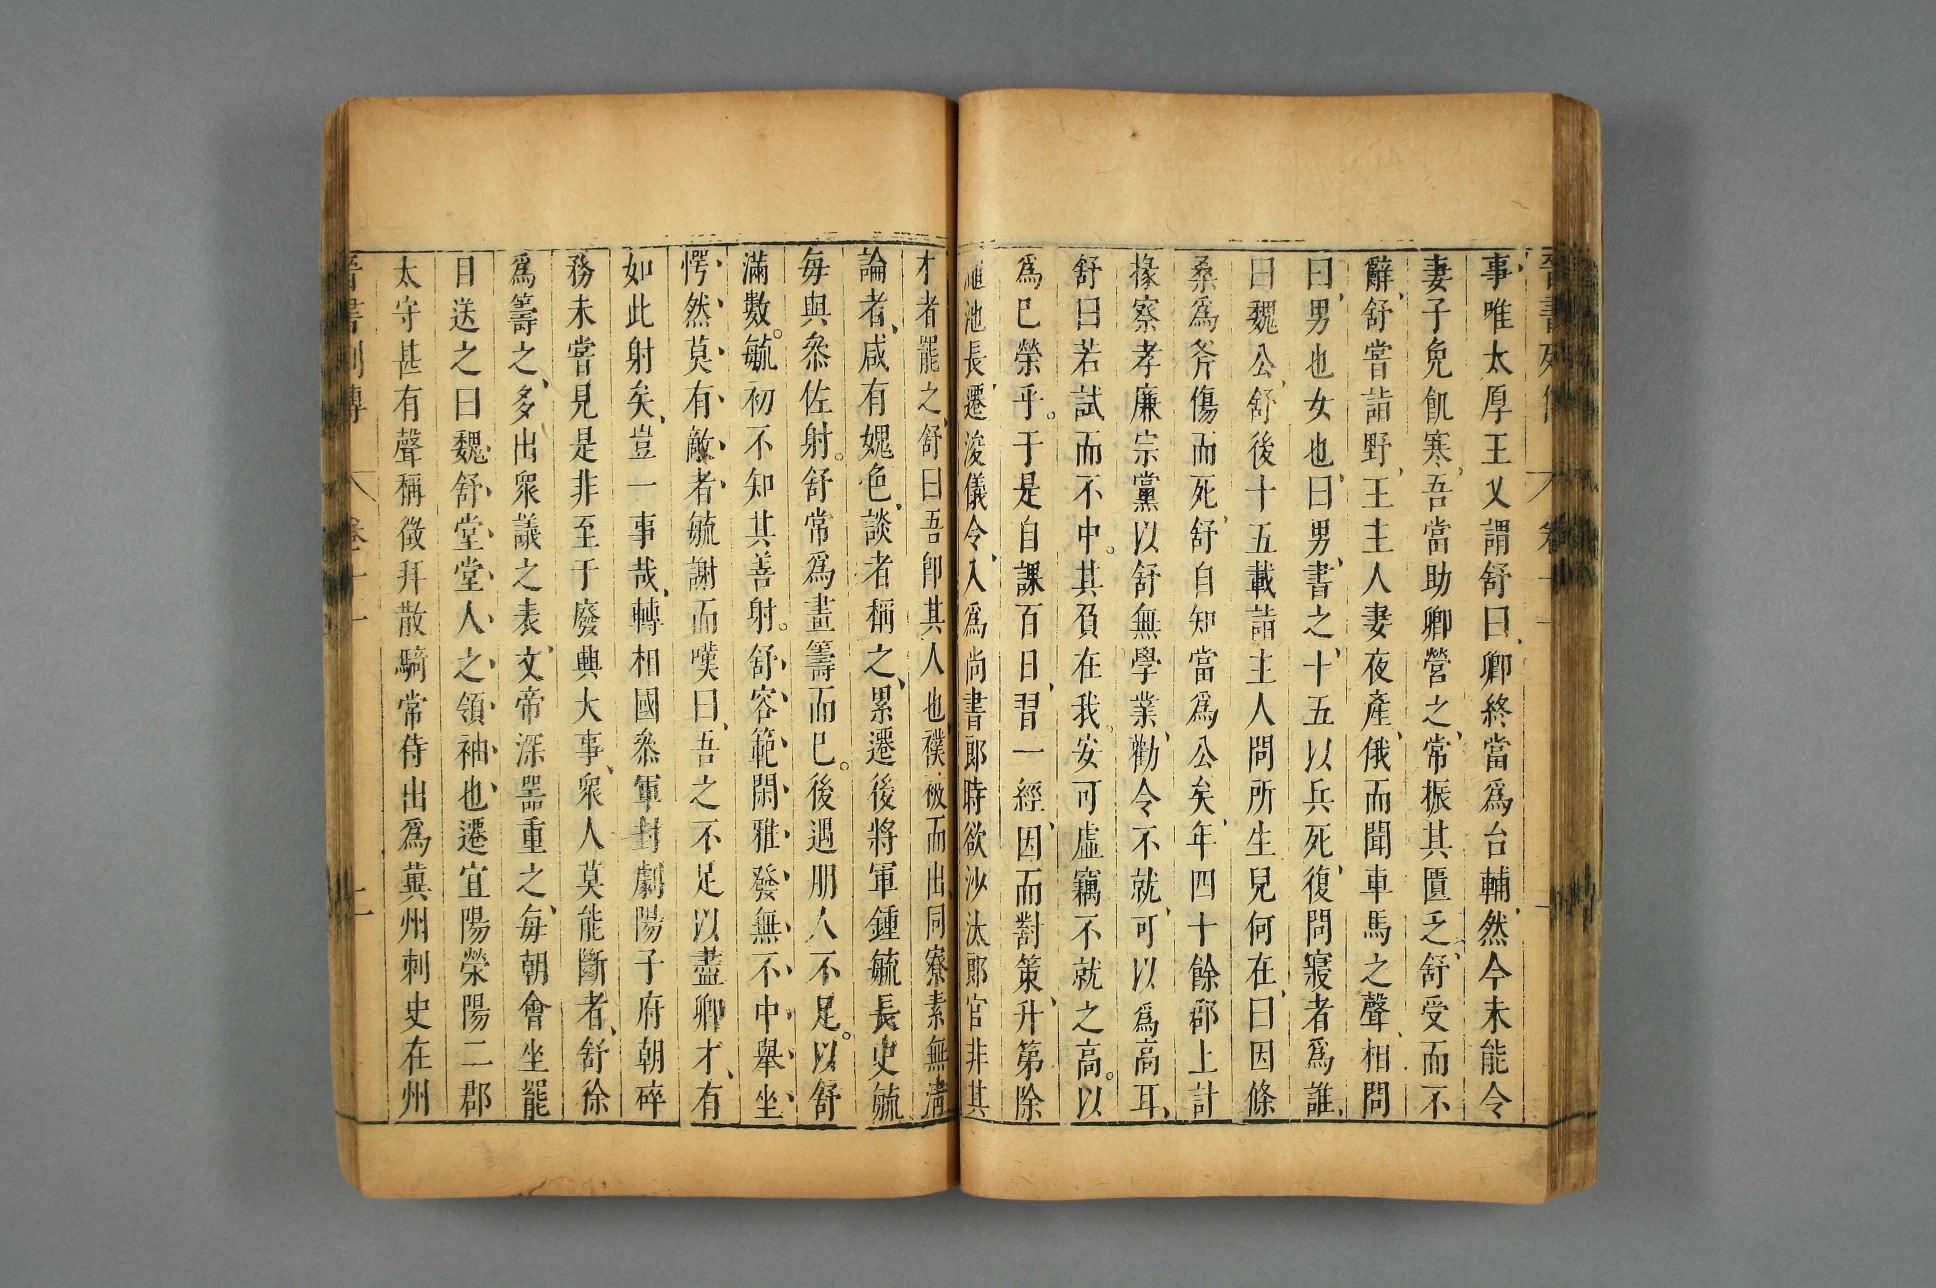 事唯太厚王乂謂舒曰卿終當爲台輔然今未能令
妻子免飢寒吾當助卿營之常振其匱乏舒受而不
辭舒嘗詣野王主人妻夜產俄而聞車馬之聲相問
曰男也女也曰男書之十五以兵死復問寢者爲誰
曰魏公舒後十五載詣主人問所生兒何在曰因條
桑爲斧傷而死舒自知當爲公矣年四十餘郡上計
掾察孝廉宗黨以舒無學業勸令不就可以爲高耳
舒曰若試而不中其負在我安可虛竊不就之高以
爲已榮乎于是自課百日習一經因而對策升第除
澠池長遷浚儀令入爲尚書郎時欲沙汰郎官非其
才者罷之舒曰吾卽其人也襆被而出同寮素無清
論者咸有媿色談者稱之累遷後將軍鍾毓長史毓
每與叅佐射舒常爲畫籌而已後遇朋人不足以舒
滿數毓初不知其善射舒容範閑雅發無不中舉坐
愕然莫有敵者毓謝而嘆曰吾之不足以盡卿才有
如此射矣豈一事哉轉相國叅軍封劇陽子府朝碎
務未嘗見是非至于廢興大事衆人莫能斷者舒徐
爲籌之多出衆議之表文帝深器重之每朝會坐罷
目送之曰魏舒堂堂人之領袖也遷宜陽滎陽二郡
太守甚有聲稱徵拜散騎常侍出爲冀州刺史在州
晉書列傳 卷十一